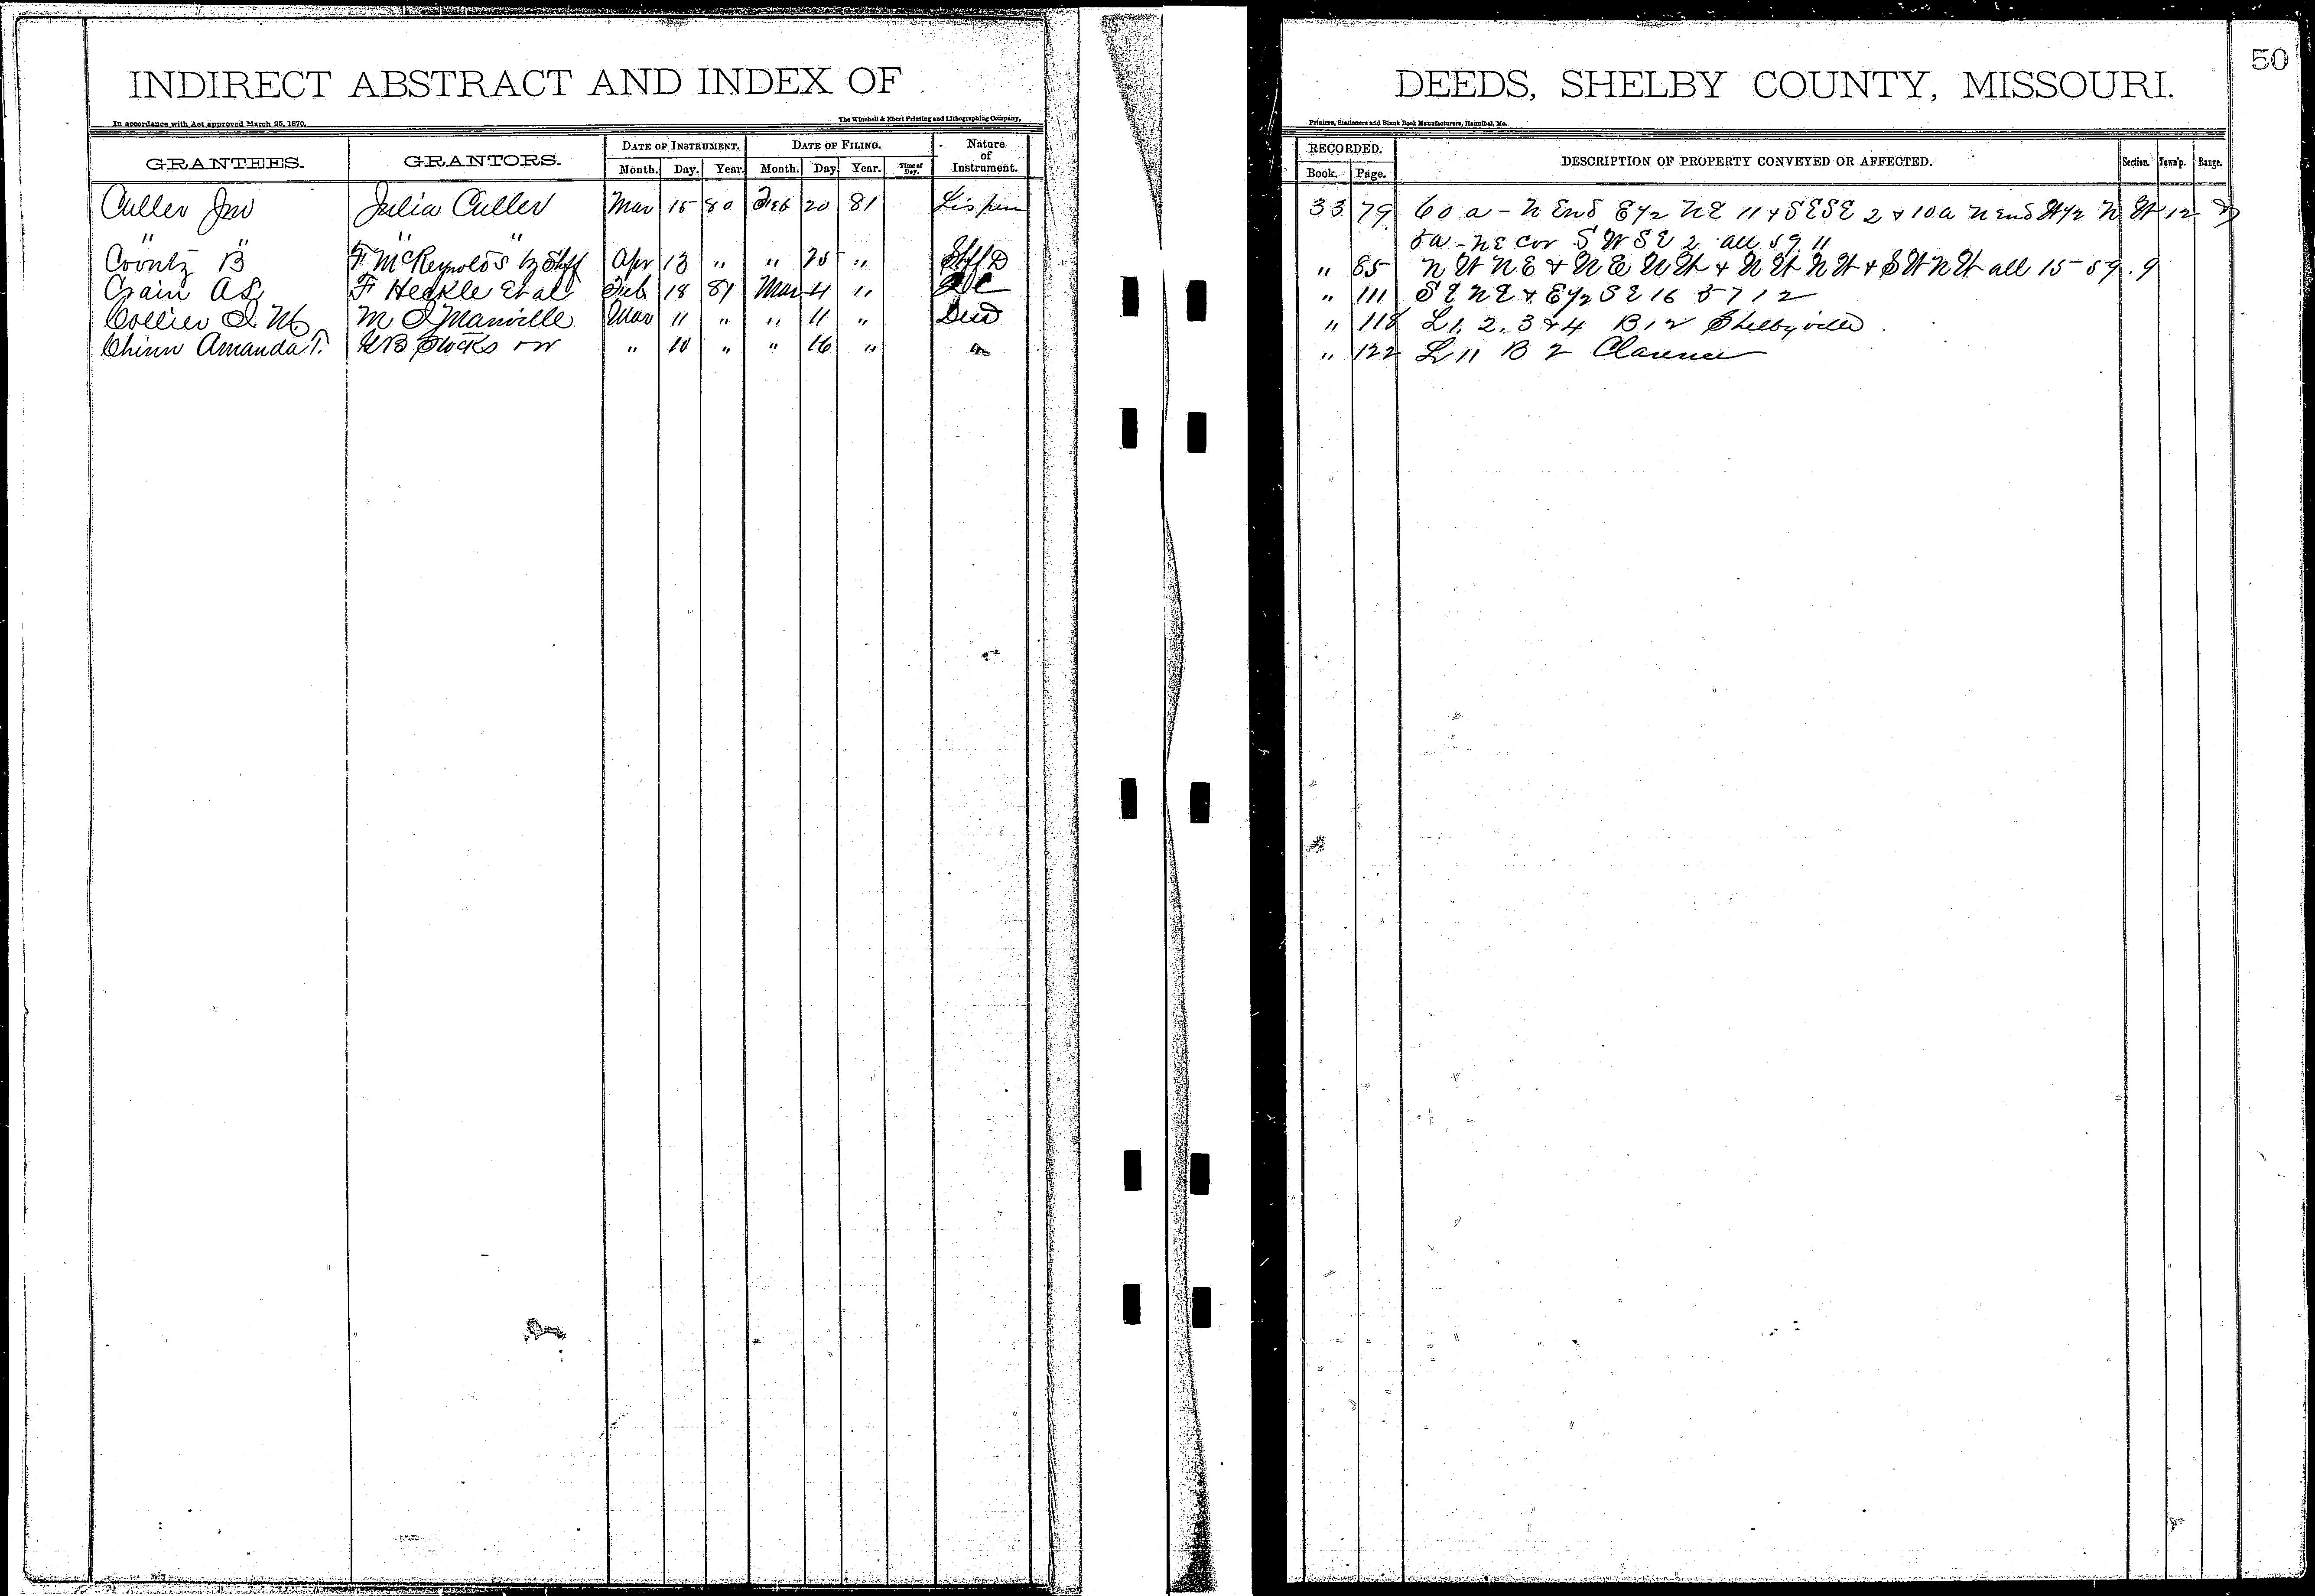 INDIRECT ABSTRACT AND INDEX OF
In accordance with Act approved March 25, 1870.
The Winchell & Ebert Printing and Lithographing Company,
GRANTEES. GRANTORS. DATE OF INSTRUMENT. DATE OF FILING. Nature of Instrument.
Month. Day. Year. Month. Day. Year. Time of Day.
Culler Jno Julia Culler Mar 15 80 Feb 20 81 Lis pen
" " " "
Coontz B F McReynolds by Shff Apr 13 " " 25 " Shff D
Crain A S F Heckle et al Feb 18 81 Mar 4 "
Collier M M Manville Mar 11 " " 11 " Deed
Chinn Amanda T. B Stocks " 10 " " 16 " "
DEEDS, SHELBY COUNTY, MISSOURI.
50
Printers, Stationers and Blank Book Manufacturers, Hannibal, Mo.
RECORDED. DESCRIPTION OF PROPERTY CONVEYED OR AFFECTED. Section. Town'p. Range.
Book. Page.
33 79 60 a - N End E 1/2 NE 11 & SESE 2 & 10 a N end W 1/2 N W 12 &
5 a - NE cor SW SE 2 all 59 11
" 85 N W NE & NE NW & N W N W & S W N W all 15-59.9
" 111 SE NE & E 1/2 SE 16 57 12
" 118 L 1, 2, 3 & 4 B 12 Shelbyville
" 122 L 11 B 2 Clarence